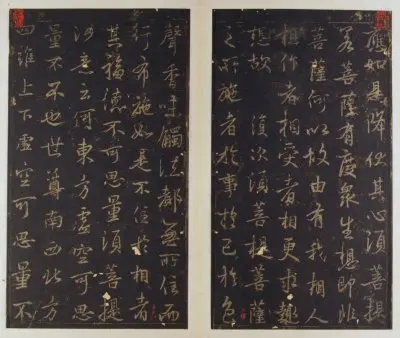 應如是降伏其心須菩提
若菩薩有度衆生想即非
菩薩何以故由有我相人
相作者相受者相更求
想故復次須菩提菩薩
之所施者於事於己於色
聲香味觸法都無所住而
行布施如是不住於相者
其福德不可思量須菩提
汝意云何東方虛空可思
量不不也世尊南西北方
四維上下虛空可思量不